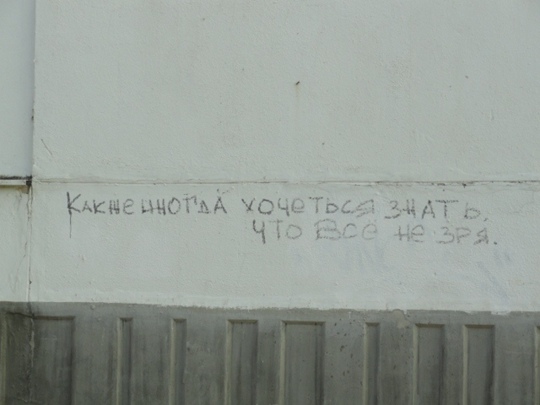 Какже иногда хочеться знать,
что все не зря.